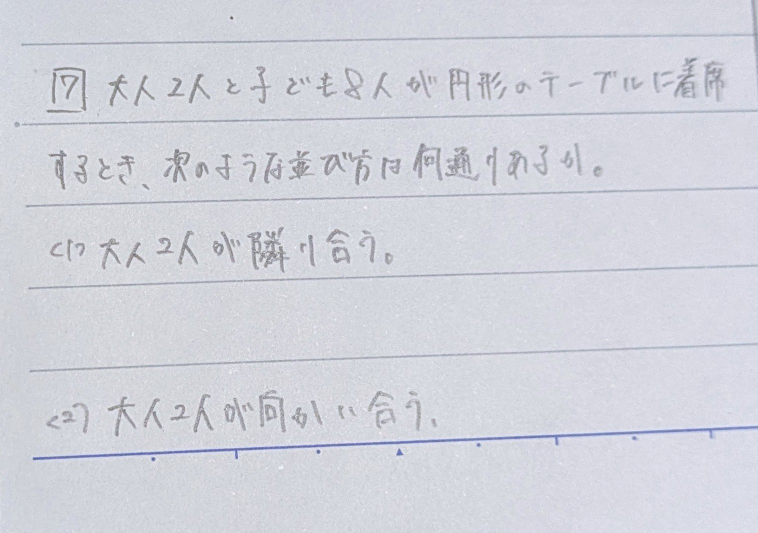 17 大人2人と子ども8人が円形のテーブルに着席
するとき、次のような並び方は何通りあるか。
(1) 大人2人が隣り合う。
(2) 大人2人が向かい合う。